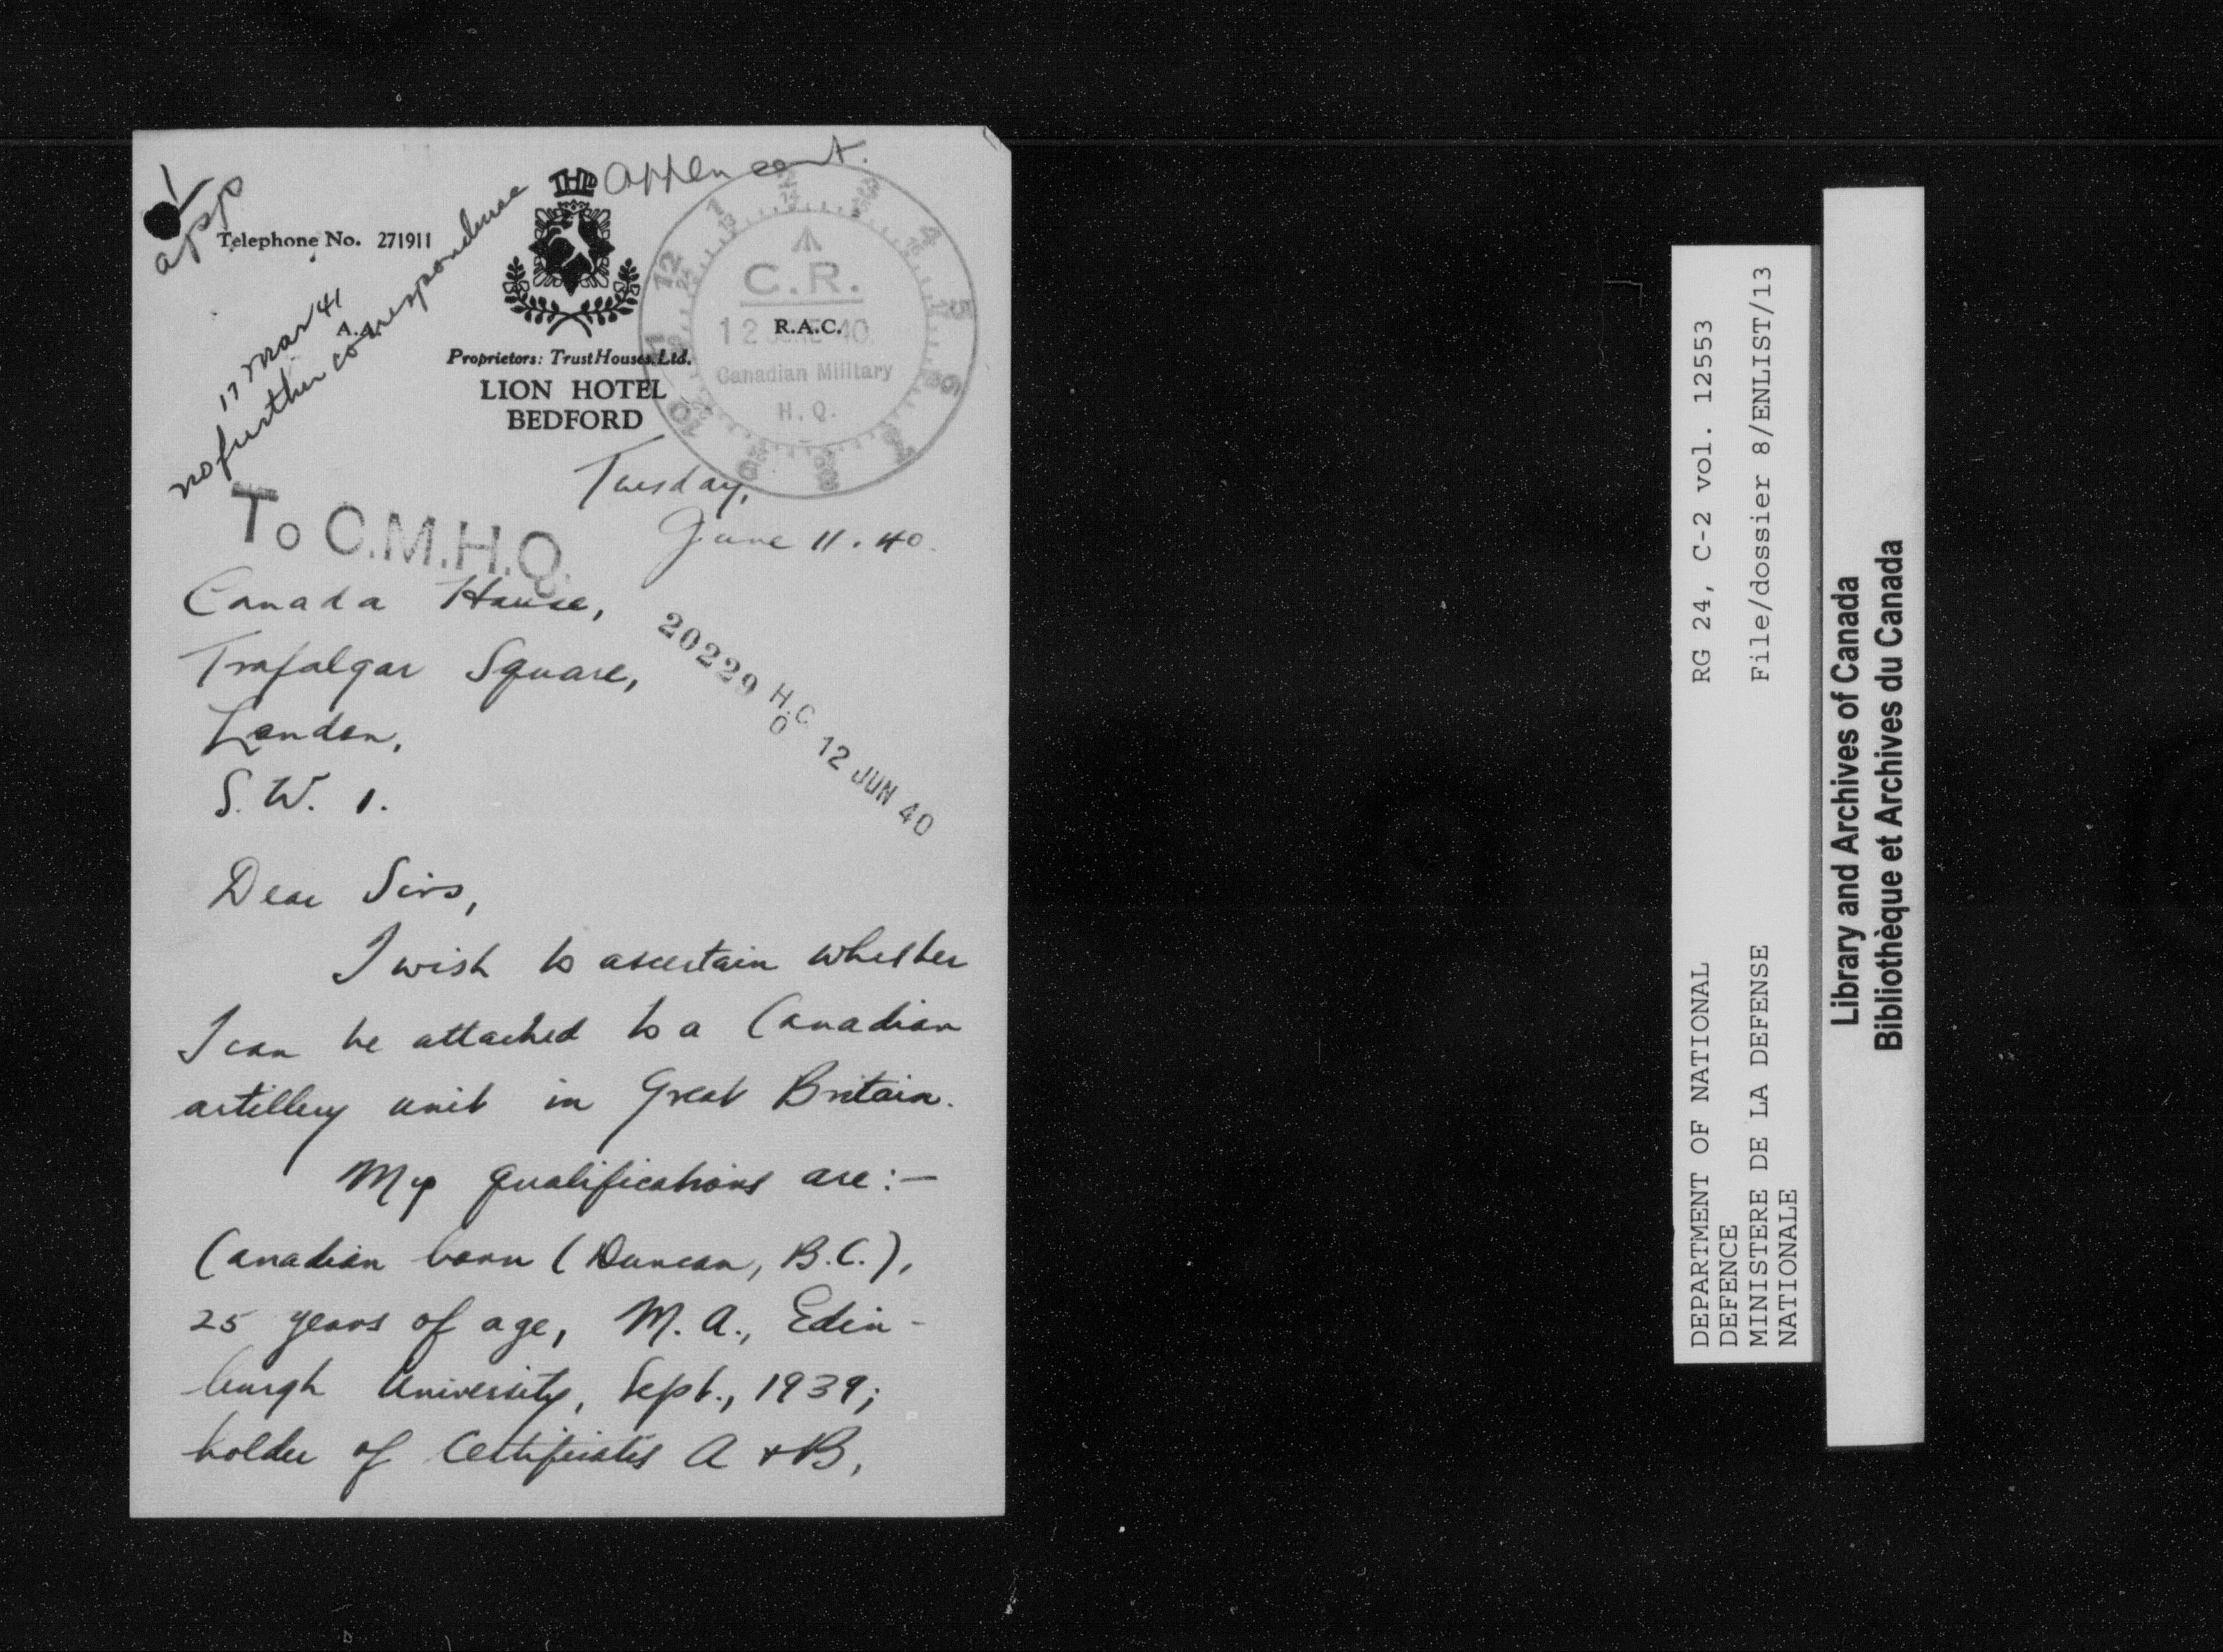 app
appln cont.
Telephone No. 271911
17 Mar 41
no further correspondence
A.A.
THL
R.A.C.
C.R.
12 JUNE 40
Canadian Military
H.Q.
Proprietors: Trust Houses Ltd.
LION HOTEL
BEDFORD
Tuesday,
June 11. 40.
To C.M.H.Q.
Canada House,
Trafalgar Square,
London,
S.W. 1.
20229 H.C.O 12 JUN 40
Dear Sirs,
I wish to ascertain whether
I can be attached to a Canadian
artillery unit in Great Britain.
My qualifications are:-
Canadian born (Duncan, B.C.),
25 years of age, M.A., Edin-
burgh University, Sept., 1939;
holder of Certificates A & B,
DEPARTMENT OF NATIONAL
DEFENCE
MINISTERE DE LA DEFENSE
NATIONALE
RG 24, C-2 vol. 12553
File/dossier 8/ENLIST/13
Library and Archives of Canada
Bibliothèque et Archives du Canada